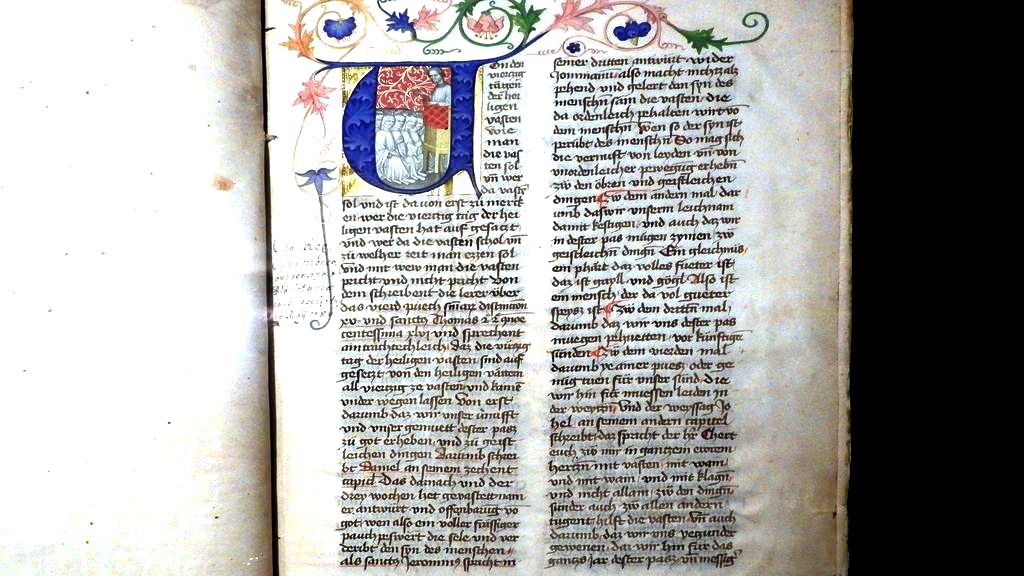 On den
viertzig
tägen
der hei
ligen
vasten
wie
man
die vas
ten sol
vn̄ wer
da vast
sol vnd ist da von erst zu merck
en wer die viertzig tag der hei
ligen vasten hat auf gesatzt
vnd wer da die vasten schol vn̄
zu welher zeit man ezzen sol
vnd mit wew man die vasten
pricht vnd nicht pricht Von
dem schreibent die lerer über
das vierd puech
xv vnd sanctus Thomas 2 2 quōe
centessima xlvi vnd sprechent
ainträchtechleich daz die viertzig
tag der heiligen vasten sind auf
gesetzt von den heiligen vätern
all viertzig ze vasten vnd kains
vnder wegen lassen Von erst
darumb daz wir vnser vernufft
vnd vnser gemuett dester pasz
zu got erheben vnd zu geist
leichen dingen Darumb schrei
bt Daniel an seinem zechent
capitel Das danach vnd der
drey wochen het gevastet nam
er antwurt vnd offenbarug vō
got wen also ein voller frässiger
pauch peswert die sele vnd ver
deribt den syn des menschen
als sanctus Jeronimus spricht in
seiner dritten antwurt wider
Jouinianū also macht nichtz als
pehend vnd gelert den syn des
menschn̄ sam die vasten die
da ordenleich pehalten wirt vō
dem menschn̄ Wen so der syn ist
perübt des menschn̄ So mag sich
die vernuft von leyden vn̄ von
vnordenleicher pewegūg erhebn̄
zw den obren vnd geistleichen
dingen Zw dem andern mal dar
umb das wir vnserm leichnam
damit kestigen vnd auch daz wir
in dester pas mügen zymen zw
geistleichn̄ dingn̄ Ein gleichnüs
ein phärt daz volles fueter ist
daz ist gayll vnd gögl Also ist
ein mensch der da vol gueter
speys ist Zw dem dritten mal
darumb daz wir vns dester pas
muegen pehuetten vor künftign̄
sünden Zw dem vierden mal
darumb
nüg tuen für vnser sünd die
wir hin für muessen leiden in
der weytzn̄ Vnd der weyssag Jo
hel an seinem andern capitel
schreibt daz spricht der hr̄ Chert
euch zw mir in gantzem ewrem
hertzn̄ mit vasten mit wain
vnd mit wain vnd mit klagn̄
vnd nicht allain zw den dingn̄
sunder auch zw allen andern
tugent hilft die vasten vn̄ auch
darumb daz wir vns yetzunder
gewenen daz wir hin für das
gantz jar dester pasz vn̄ messig